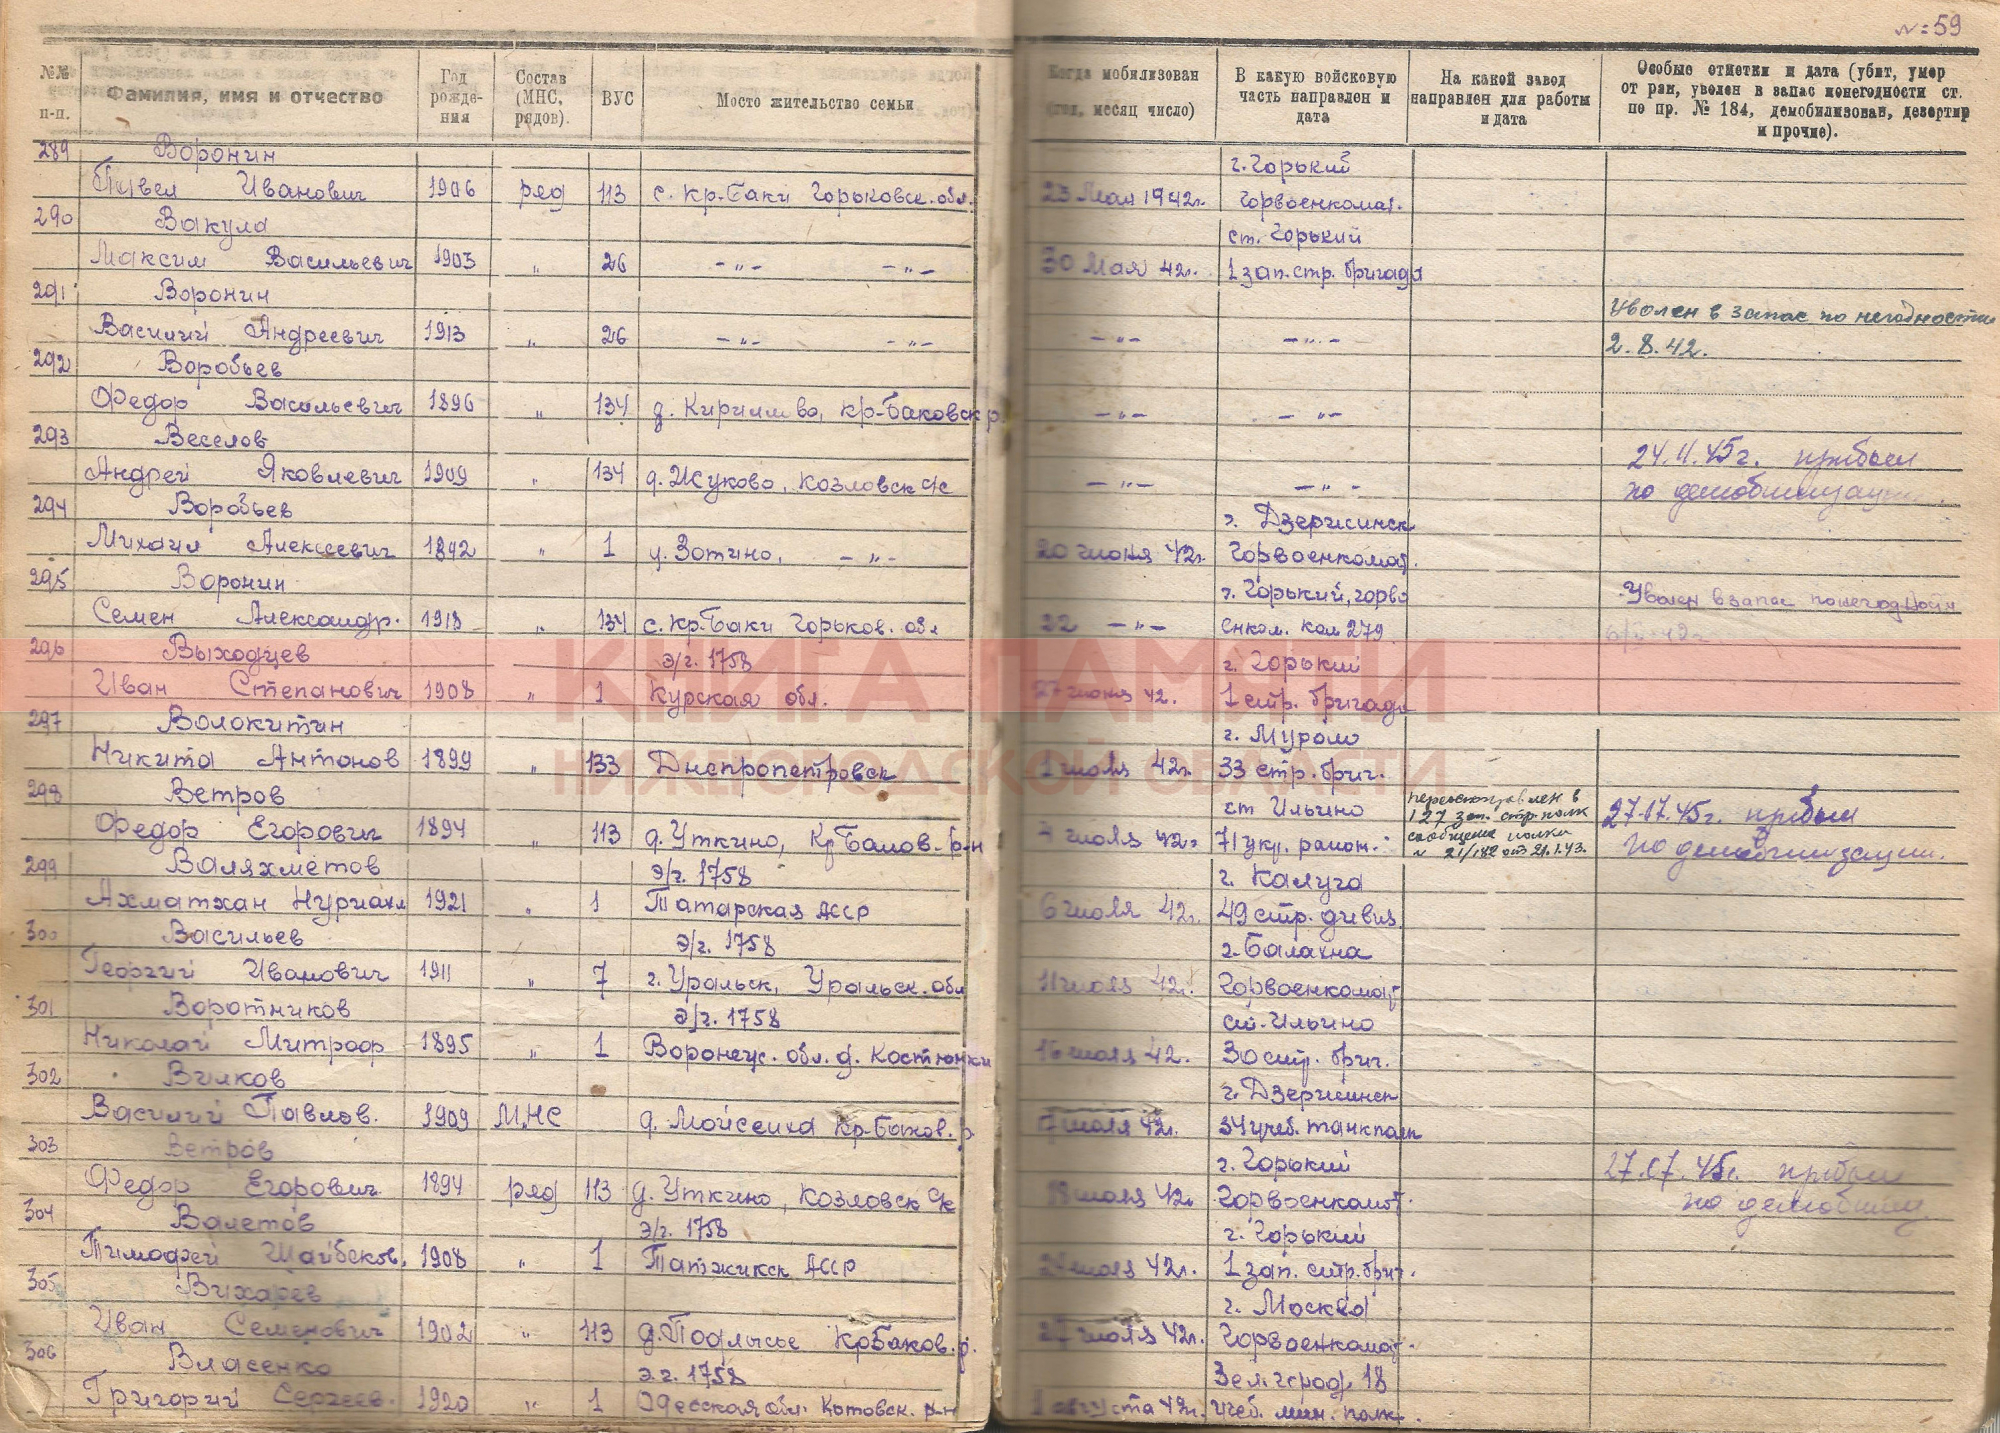 № 59
№№ п-п.
Фамилия, имя и отчество
Год рожде-ния
Состав (МНС, рядов).
ВУС
Место жительство семьи
Когда мобилизован (год, месяц число)
В какую войсковую часть направлен и дата
На какой завод направлен для работы и дата
Особые отметки и дата (убит, умер от ран, уволен в запас понегодности ст. по пр. № 184, демобилизован, дезертир и прочие).
289 Воронин г. Горький
Павел Иванович 1906 ряд 113 с. Кр-Баки Горьковск. обл. 23 Мая 1942г. Горвоенкомат.
290 Вакула ст. Горький
Максим Васильевич 1903 „ 26 -„- -„- 30 Мая 42г. 1 зап. стр. бригада
291 Воронин Уволен в запас по негодности
Василий Андреевич 1913 „ 26 -„- -„- -„- -„- 2.8.42.
292 Воробьев
Федор Васильевич 1896 „ 134 д. Кириллово, Кр-Баковск р. -„- -„-
293 Веселов 24.11.45г. прибыл
Андрей Яковлевич 1909 „ 134 д. Жуково, Козловск с/с -„- -„- по демобилизации.
294 Воробьев г. Дзержинск
Михаил Алексеевич 1892 „ 1 д. Зотино, -„- 20 июня 42г. Горвоенкомат.
295 Воронин г. Горький, горво
Семен Александр. 1918 „ 134 с. Кр-Баки Горьков. обл 22 -„- енком. ком 279 Уволен в запас
296 Выходцев э/г. 1758 г. Горький
Иван Степанович 1908 „ 1 Курская обл. 27 июня 42. 1 стр. бригада
КНИГА ПАМЯТИ
НИЖЕГОРОДСКОЙ ОБЛАСТИ
297 Волокитин г. Муром
Никита Антонов 1899 „ 133 Днепропетровск 1 июля 42г. 33 стр. бриг.
298 Ветров ст Ильино
Федор Егорович 1894 „ 113 д. Уткино, Кр Баков. р-н 4 июля 42г 71 укр. район.
в 127 зап. стр. полк
сообщение полка
№ 21/182 от 21.1.43.
27.07.45г. прибыл
по демобилизации.
299 Валяхметов э/г. 1758 г. Калуга
Ахматхан Нуриахм 1921 „ 1 Татарская АССР 6 июля 42г. 49 стр. дивиз.
300 Васильев э/г. 1758 г. Балахна
Георгий Иванович 1911 „ 7 г. Уральск, Уральск. обл 11 июля 42г. Горвоенкомат
301 Воротников э/г. 1758 ст. Ильино
Николай Митроф 1895 „ 1 Воронеж. обл. д. Костюнки 16 июля 42. 30 стр. бриг.
302 Вилков г. Дзержинск
Василий Павлов. 1909 МНС д. Мойсеиха Кр-Баков. р. 17 июля 42г. 34 учеб. танкполк
303 Ветров г. Горький 27.07.45г. прибыл
Федор Егорович 1894 ряд 113 д. Уткино, Козловск с/с 18 июля 42г Горвоенкомат. по демобилиз.
304 Валетов э/г. 1758 г. Горький
Тимофей Шайбсков. 1908 „ 1 Татжикск АССР 24 июля 42г. 1 зап. стр. бриг.
305 Вихарев г. Москва
Иван Семенович 1902 „ 113 д. Подлысье КрБаков. р. 27 июля 42г. Горвоенкомат.
306 Власенко э.г. 1758 Зел. град. 18
Григорий Сергеев. 1920 „ 1 Одесская обл. Котовск. р-н 1 августа 42г. учеб. мин. полк.